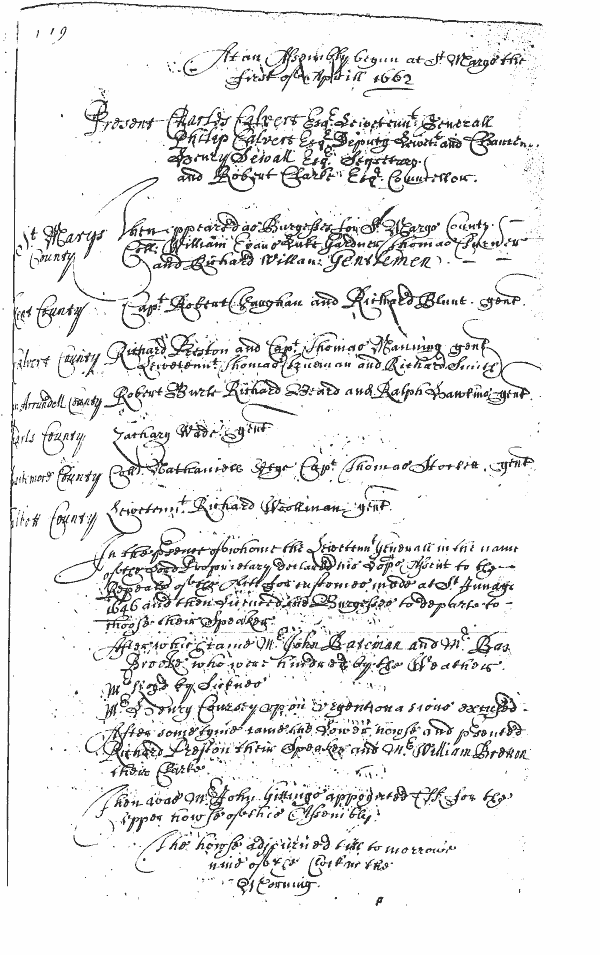 119
At an Assembly begun at St Marys the
first of Aprill 1662
Present Charles Calvert Esqr Leivetennt Generall
Philip Calvert Esqr Deputy Levt and Chancr.
Henry Sewall Esqr Secretary
and Robert Clarke Esqr Councellor.
St Marys Then appeared as Burgesses for St Marys County
County Coll: William Evans Luke Gardner Thomas Turner
and Richard Willan: Gentlemen
Kent County Capt Robert Vaughan and Richard Blunt. gent.
Calvert County Richard Preston and Capt Thomas Manning gent
Leivetennt Thomas Trueman and Richard Smith
Ann Arrundell County Robert Burle Richard Beard and Ralph Hawkins gent
Charls County Zachary Wade gent
Baltemore County Coll: Nathaniell Utye Capt Thomas Stockett. gent
Talbott County Leivetennt Richard Woolman gent
In the presence of whome the Leivetennt Generall in the name
of the Lord Proprietary declared his Lopps Assent to the
Repeale of the Act for customes made at St
1646 and then Licenced Burgesses to departe to
choose their Speaker
After which came Mr John Bateman and Mr Bar
Brooke who were hindred by the Weather
Mr by Sicknes
Mr Henry Coursey upon urgent occasions excused
After some tyme came the Lower howse and psented
Richard Preston their Speaker and Mr William Bretton
their Clarke
Then was Mr John Gittings appoynted Clk for the
upper howse of this Assembly
The howse adjourned till to morrowe
nine of the Clock in the
Morning.